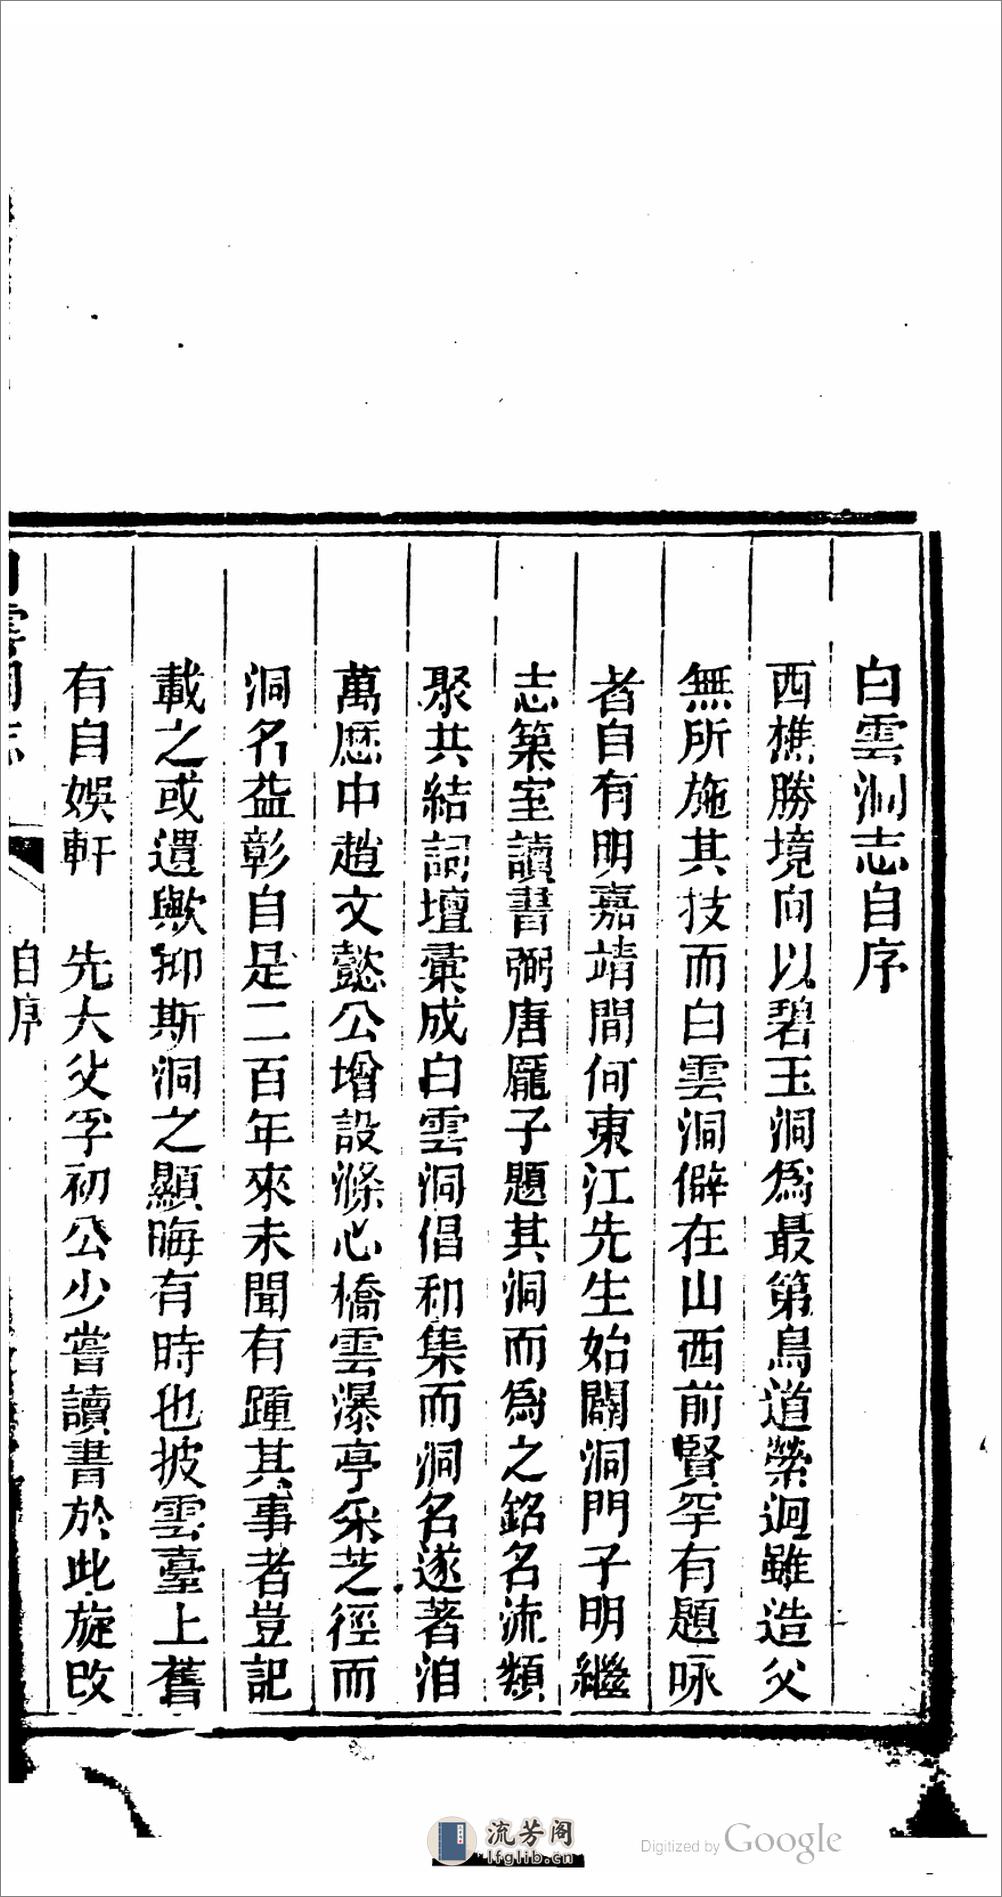 白雲洞志自序
西樵勝境向以碧玉洞爲最第鳥道縈迴雖造父
無所施其技而白雲洞僻在山西前賢罕有題咏
者自有明嘉靖間何東江先生始闢洞門子明繼
志築室讀書弼唐龐子題其洞而爲之銘名流類
聚共結詞壇彙成白雲洞倡和集而洞名遂著洎
萬歷中趙文懿公增設滌心橋雲瀑亭采芝徑而
洞名益彰自是二百年來未聞有踵其事者豈記
載之或遺歟抑斯洞之顯晦有時也披雲臺上舊
有自娛軒　先大父孚初公少嘗讀書於此旋改
白雲洞志
自序
流芳阁
lfglib.cn
Digitized by Google